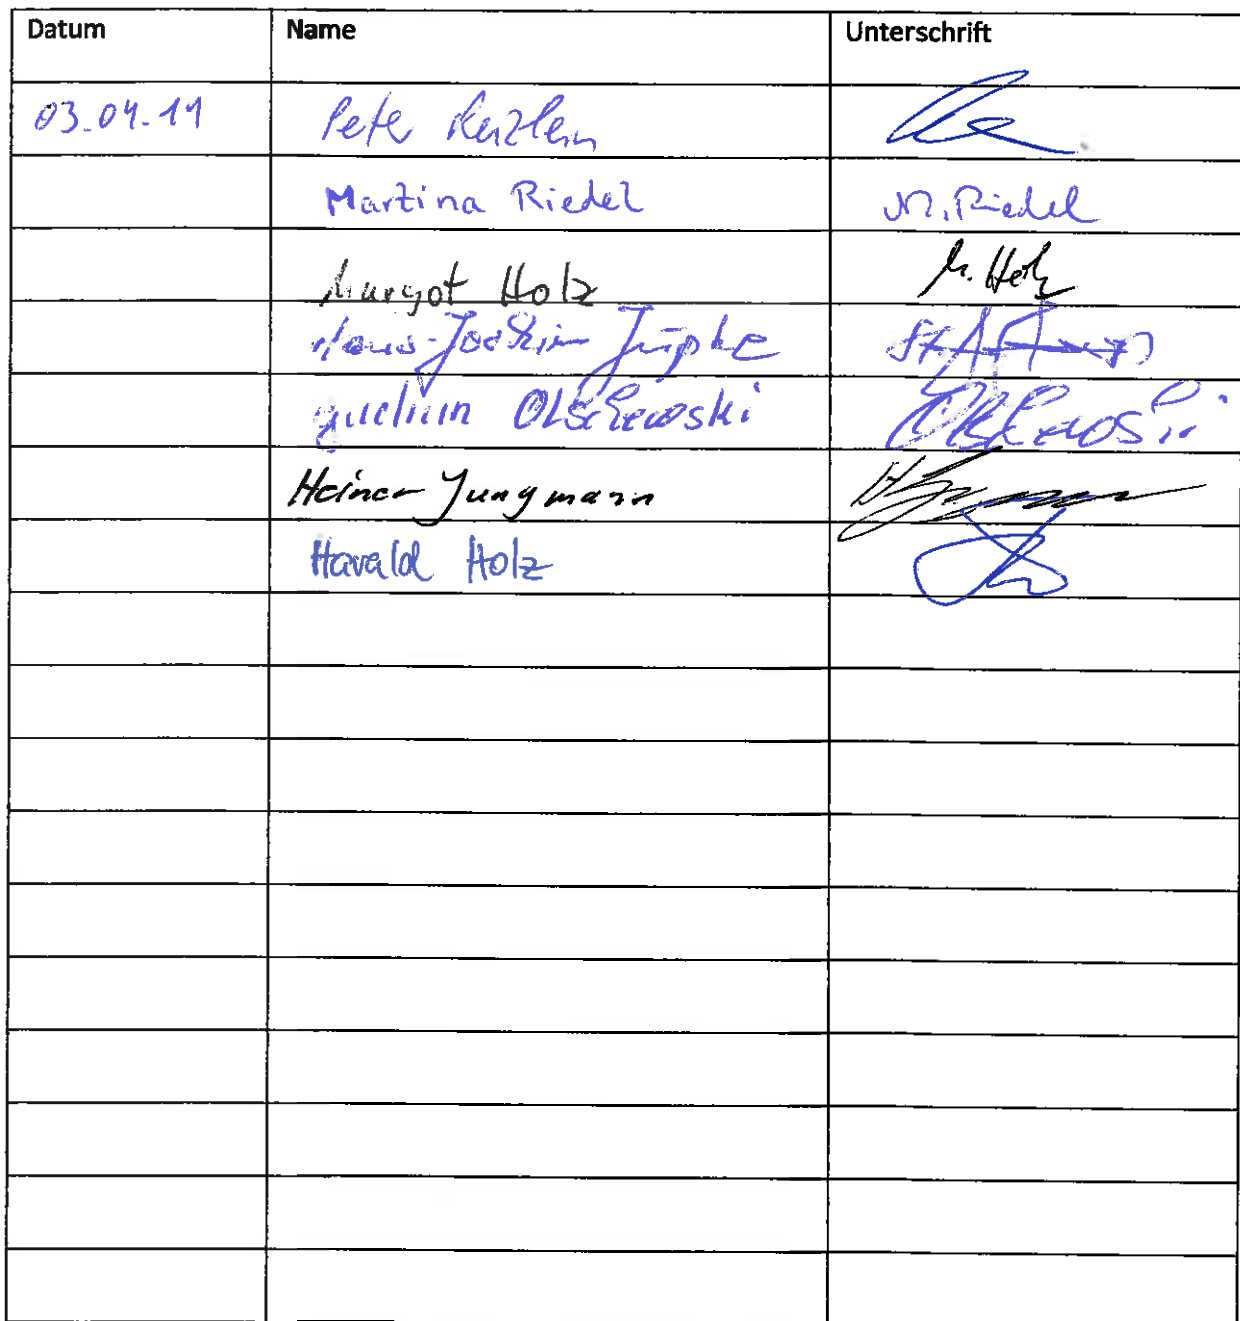 Datum Name Unterschrift
03.04.11 Peter
Martina Riedel M. Riedel
Margot Holz M. Holz
Hans-Joachim Jüpke
Olschewski Olschewski
Heiner Jungmann
Harald Holz